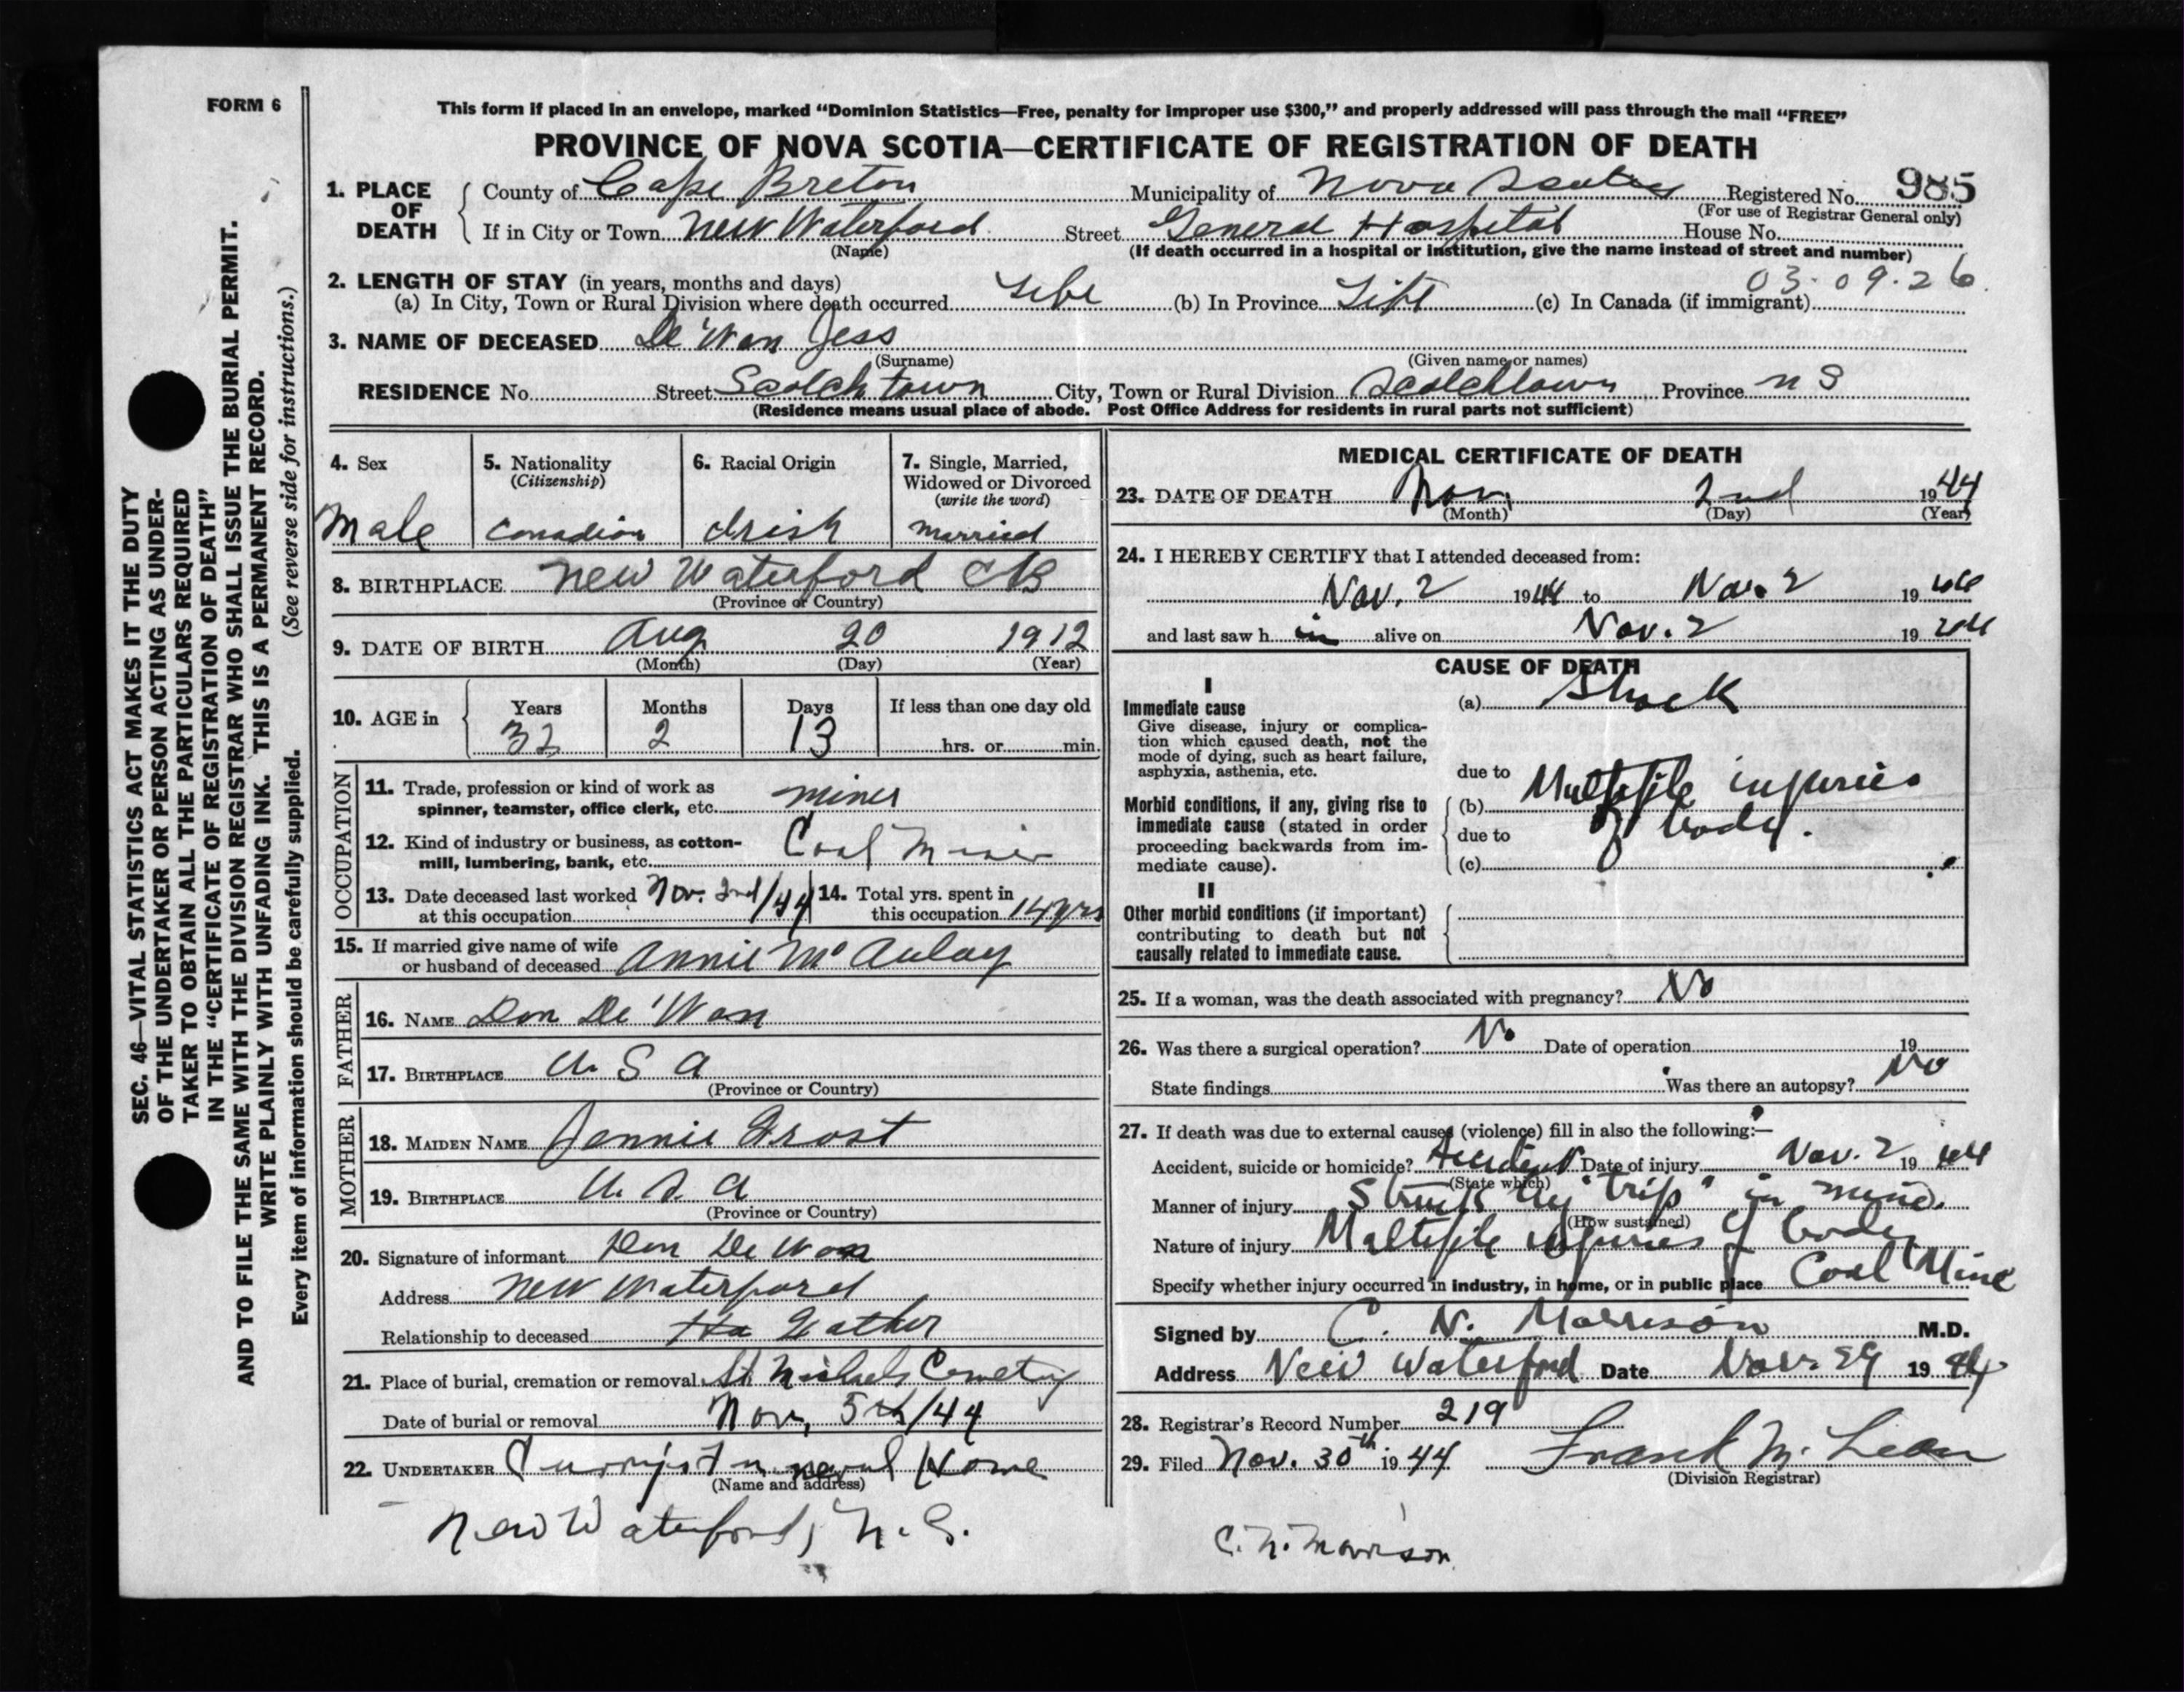 FORM 6
This form if placed in an envelope, marked “Dominion Statistics—Free, penalty for improper use $300,” and properly addressed will pass through the mail “FREE”
PROVINCE OF NOVA SCOTIA—CERTIFICATE OF REGISTRATION OF DEATH
1. PLACE OF DEATH { County of Cape Breton Municipality of Nova Scotia Registered No. 985
(For use of Registrar General only)
If in City or Town New Waterford Street General Hospital House No.
(Name) (If death occurred in a hospital or institution, give the name instead of street and number)
2. LENGTH OF STAY (in years, months and days) 03.09.26.
(a) In City, Town or Rural Division where death occurred Life (b) In Province Life (c) In Canada (if immigrant)
3. NAME OF DECEASED De'Wan Jess
(Surname) (Given name or names)
RESIDENCE No. Street Scotchtown City, Town or Rural Division Scotchtown Province N S
(Residence means usual place of abode. Post Office Address for residents in rural parts not sufficient)
4. Sex 5. Nationality 6. Racial Origin 7. Single, Married,
(Citizenship) Widowed or Divorced
(write the word)
Male Canadian Irish Married
8. BIRTHPLACE New Waterford CB
(Province or Country)
9. DATE OF BIRTH Aug 20 1912
(Month) (Day) (Year)
10. AGE in { Years Months Days If less than one day old
32 2 13 hrs. or min.
OCCUPATION
11. Trade, profession or kind of work as
spinner, teamster, office clerk, etc. miner
12. Kind of industry or business, as cotton-
mill, lumbering, bank, etc. Coal
13. Date deceased last worked Nov. 2nd/44 14. Total yrs. spent in
at this occupation this occupation 14 yrs
15. If married give name of wife
or husband of deceased Annie McAulay
FATHER
16. NAME Don De'Wan
17. BIRTHPLACE U. S A
(Province or Country)
MOTHER
18. MAIDEN NAME Jennie Frost
19. BIRTHPLACE U. S. A
(Province or Country)
20. Signature of informant Don De Wan
Address New Waterford
Relationship to deceased Father
21. Place of burial, cremation or removal St. Michaels Cemetry
Date of burial or removal Nov. 5th/44
22. UNDERTAKER Curry's Funeral Home
(Name and address)
New Waterford, N. S.
MEDICAL CERTIFICATE OF DEATH
23. DATE OF DEATH Nov. 2nd 1944
(Month) (Day) (Year)
24. I HEREBY CERTIFY that I attended deceased from:
Nov. 2 1944 to Nov. 2 1944
and last saw h im alive on Nov. 2 1944
CAUSE OF DEATH
I
Immediate cause (a) Shock
Give disease, injury or complica-
tion which caused death, not the
mode of dying, such as heart failure,
asphyxia, asthenia, etc. due to
Morbid conditions, if any, giving rise to (b) Multiple injuries
immediate cause (stated in order due to of body.
proceeding backwards from im-
mediate cause). (c)
II
Other morbid conditions (if important)
contributing to death but not
causally related to immediate cause.
25. If a woman, was the death associated with pregnancy? No
26. Was there a surgical operation? No Date of operation 19
State findings Was there an autopsy? No
27. If death was due to external causes (violence) fill in also the following:—
Accident, suicide or homicide? Accident Date of injury Nov. 2 1944
(State which)
Manner of injury Struck by "trip" in mine.
(How sustained)
Nature of injury Multiple injuries of body
Specify whether injury occurred in industry, in home, or in public place Coal Mine
Signed by C. N. Morrison M.D.
Address New Waterford Date Nov. 29 1944
28. Registrar's Record Number 219
29. Filed Nov. 30th 1944 Frank McLean
(Division Registrar)
C. N. Morrison
SEC. 46—VITAL STATISTICS ACT MAKES IT THE DUTY
OF THE UNDERTAKER OR PERSON ACTING AS UNDER-
TAKER TO OBTAIN ALL THE PARTICULARS REQUIRED
IN THE “CERTIFICATE OF REGISTRATION OF DEATH”
AND TO FILE THE SAME WITH THE DIVISION REGISTRAR WHO SHALL ISSUE THE BURIAL PERMIT.
WRITE PLAINLY WITH UNFADING INK. THIS IS A PERMANENT RECORD.
Every item of information should be carefully supplied. (See reverse side for instructions.)